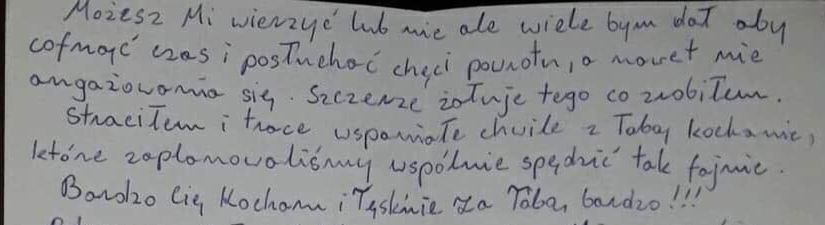 Możesz Mi wierzyć lub nie ale wiele bym dał aby
cofnąć czas i posłuchać chęci powrotu, a nawet nie
angażowania się. Szczerze żałuje tego co zrobiłem.
Straciłem i trace wspaniałe chwile z Tobą kochanie,
które zaplanowaliśmy wspólnie spędzić tak fajnie.
Bardzo Cię Kocham i Tęsknie za Tobą, bardzo!!!